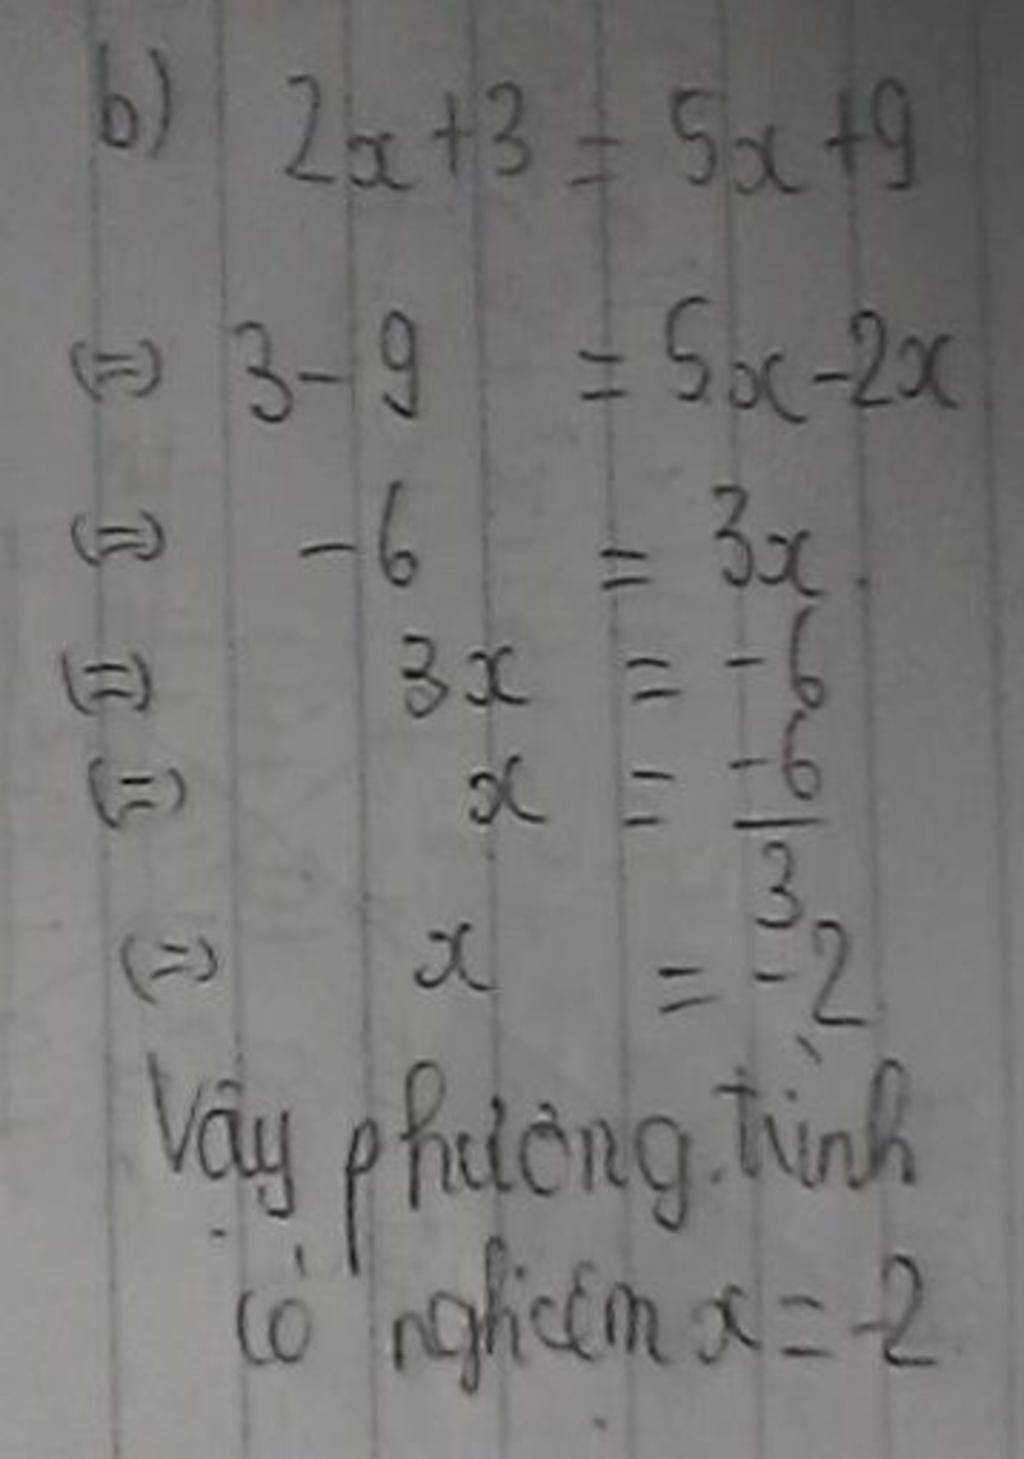 b) 2x+3 = 5x+9
(=) 3-9 = 5x-2x
(=) -6 = 3x.
(=) 3x = -6
(=) x = -6/3
(=) x = -2
Vậy phương trình
có nghiệm x = -2